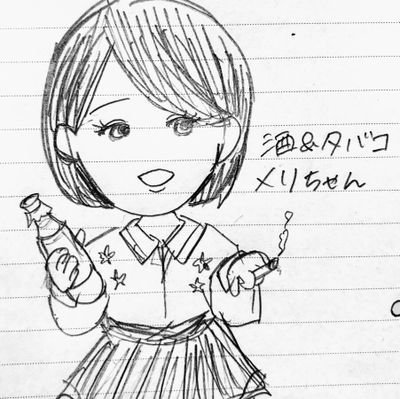 酒&タバコ
メリちゃん